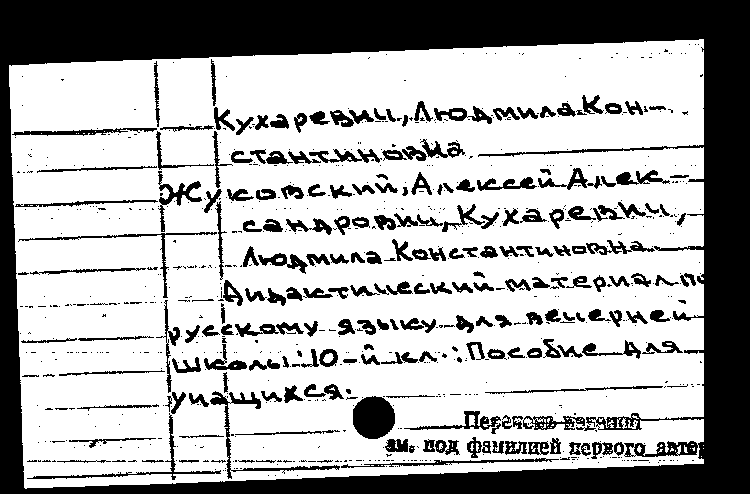 Кухаревич, Людмила Кон-
стантиновна
Жуковский, Алексей Алек-
сандрович, Кухаревич,
Людмила Константиновна.
Дидактический материал по
русскому языку для вечерней
школы: 10-й кл.: Пособие для
учащихся.
Перечень изданий
см. под фамилией первого автор